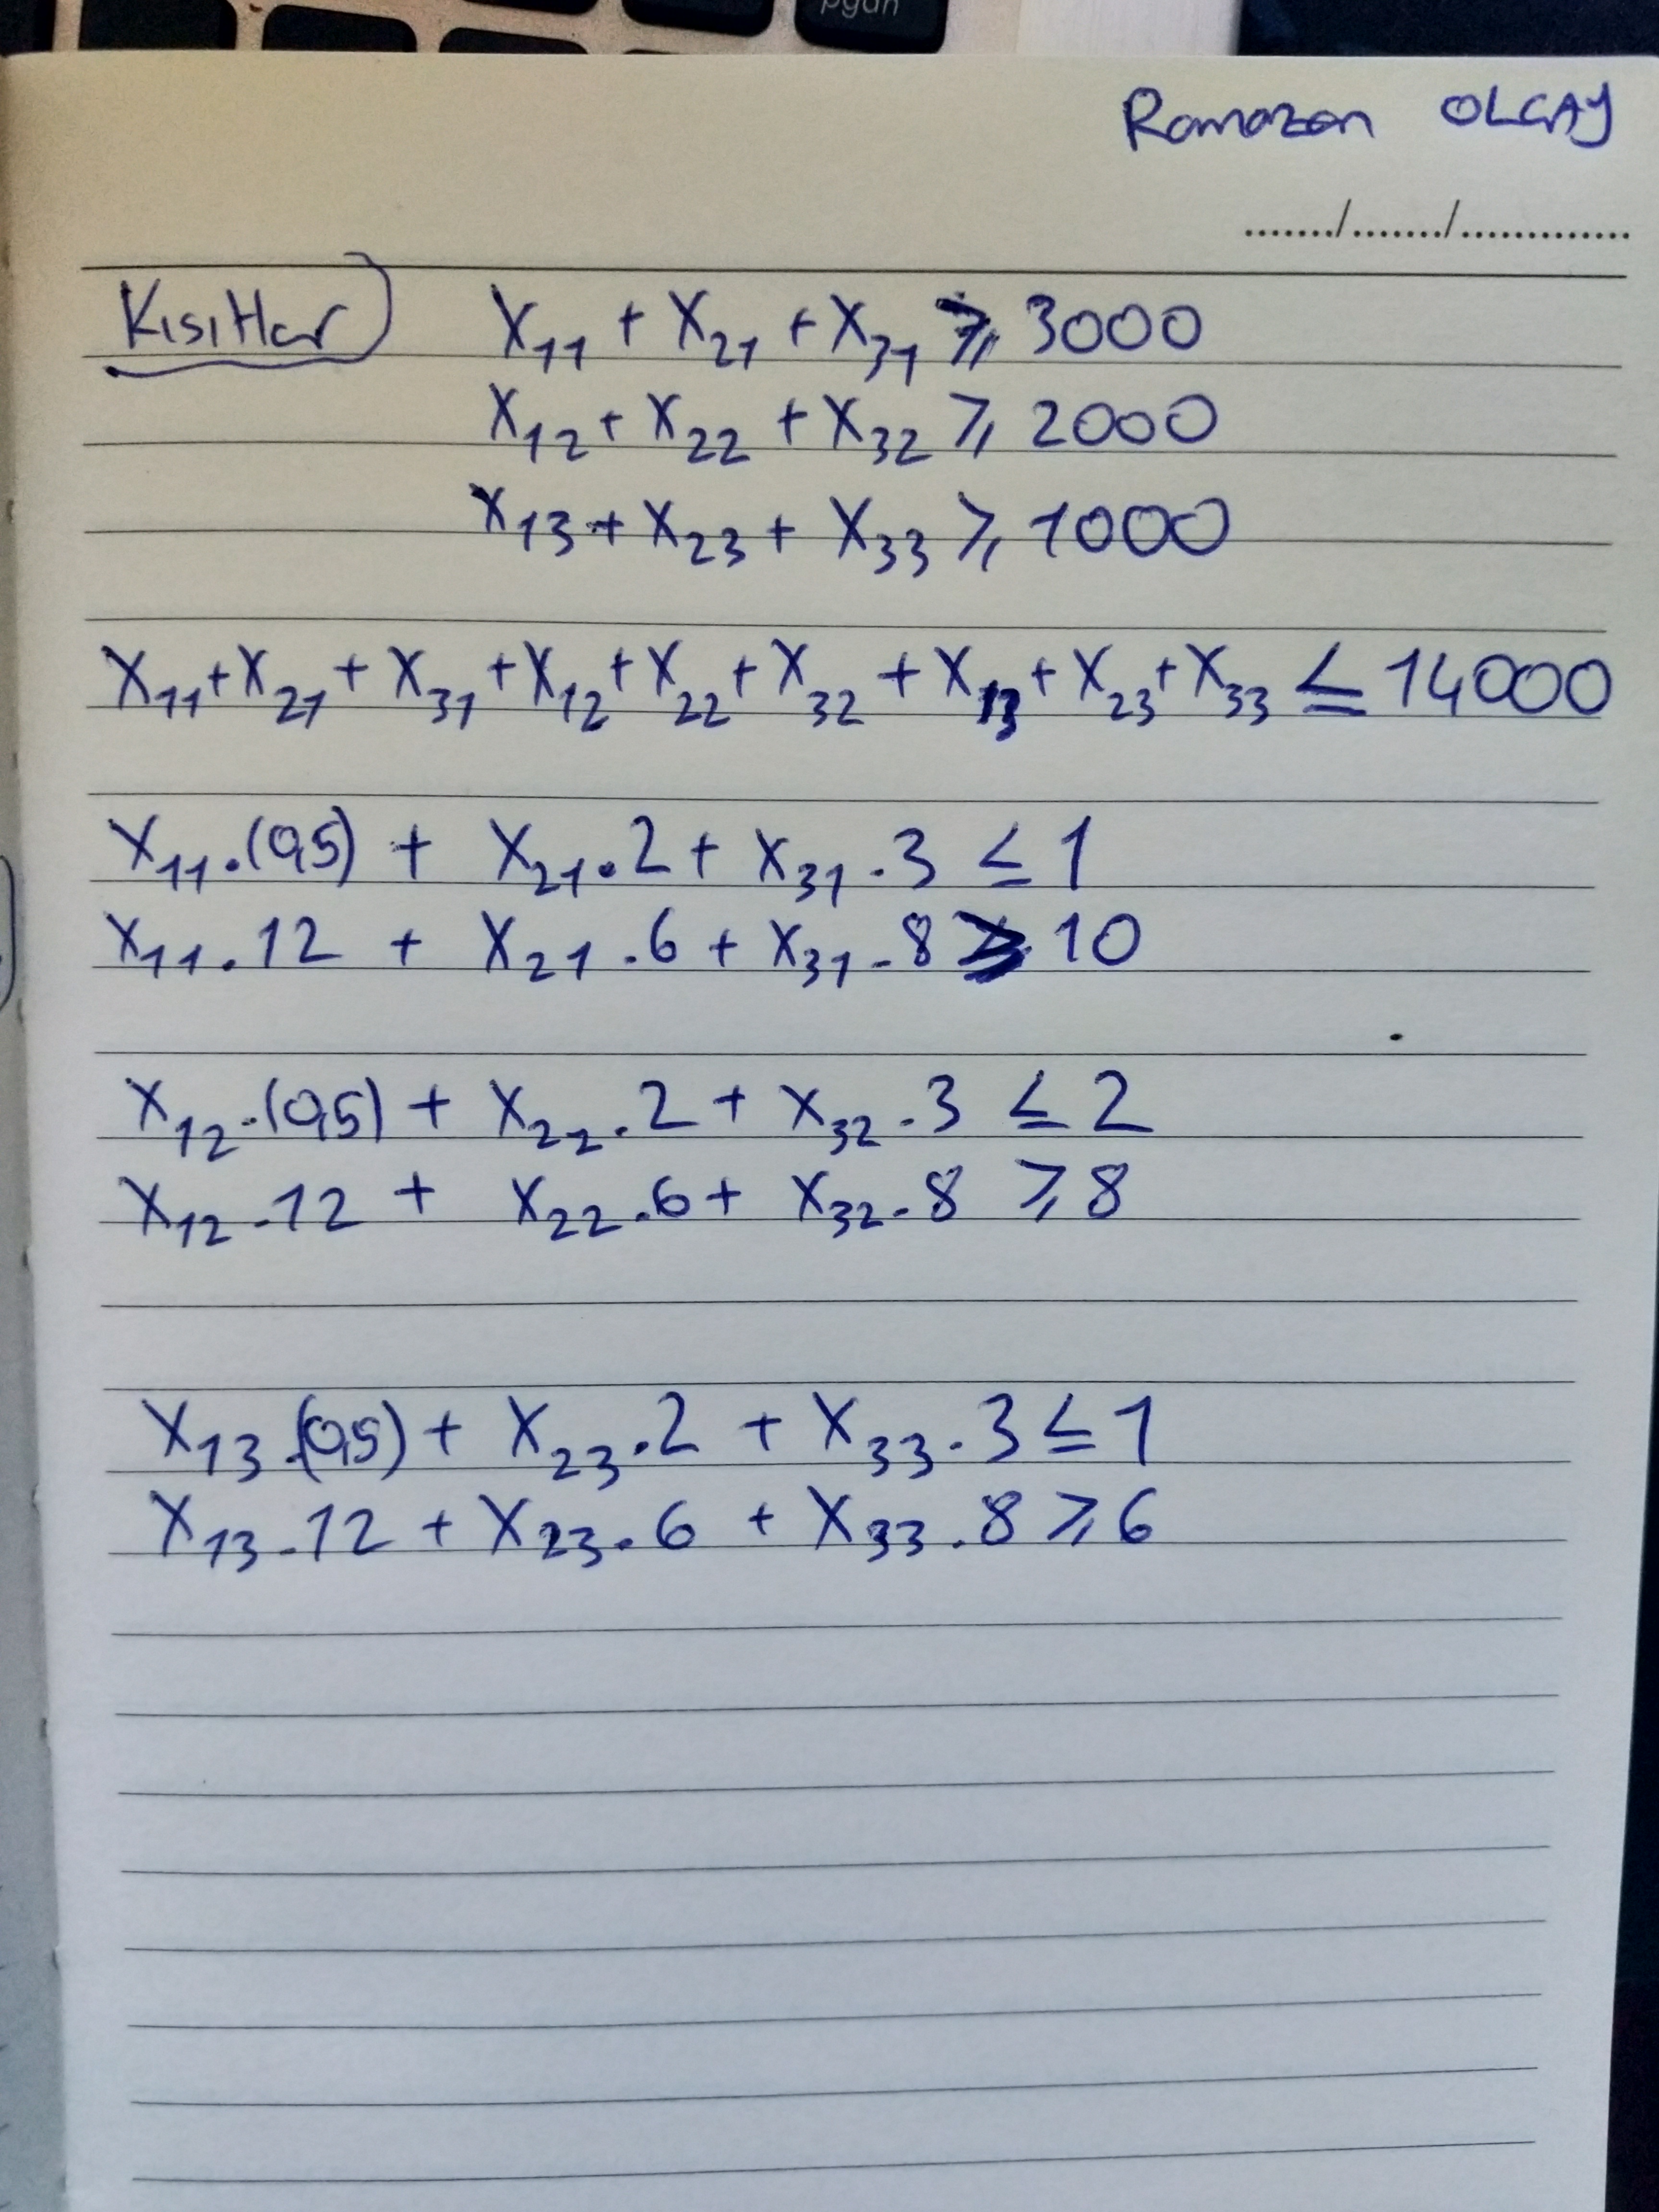 pgdn
Ramazan OLGAY
......./......./.............
Kısıtlar) X11 + X21 + X31 ≥ 3000
X12 + X22 + X32 ≥ 2000
X13 + X23 + X33 ≥ 1000
X11 + X21 + X31 + X12 + X22 + X32 + X13 + X23 + X33 ≤ 14000
X11.(0,5) + X21.2 + X31.3 ≤ 1
X11.12 + X21.6 + X31.8 ≥ 10
X12.(0,5) + X22.2 + X32.3 ≤ 2
X12.12 + X22.6 + X32.8 ≥ 8
X13.(0,5) + X23.2 + X33.3 ≤ 1
X13.12 + X23.6 + X33.8 ≥ 6